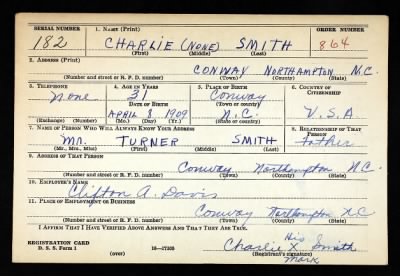 SERIAL NUMBER 1. NAME (Print) ORDER NUMBER
182 CHARLIE (NONE) SMITH 864
(First) (Middle) (Last)
2. ADDRESS (Print)
CONWAY NORTHAMPTON N.C.
(Number and street or R. F. D. number) (Town) (County) (State)
3. TELEPHONE 4. AGE IN YEARS 5. PLACE OF BIRTH 6. COUNTRY OF CITIZENSHIP
None 31 Conway
DATE OF BIRTH (Town or county)
April 1909 N.C. U.S.A
(Exchange) (Number) (Mo.) (Day) (Yr.) (State or country)
7. NAME OF PERSON WHO WILL ALWAYS KNOW YOUR ADDRESS 8. RELATIONSHIP OF THAT PERSON
Mr. TURNER SMITH Father
(Mr., Mrs., Miss) (First) (Middle) (Last)
9. ADDRESS OF THAT PERSON
Conway Northampton N.C.
(Number and street or R. F. D. number) (Town) (County) (State)
10. EMPLOYER'S NAME
Clifton A. Davis
11. PLACE OF EMPLOYMENT OR BUSINESS
Conway Northampton N.C.
(Number and street or R. F. D. number) (Town) (County) (State)
I AFFIRM THAT I HAVE VERIFIED ABOVE ANSWERS AND THAT THEY ARE TRUE.
His
REGISTRATION CARD Charlie X Smith
D. S. S. Form 1 (over) 16—17105 (Registrant's signature)
Mark